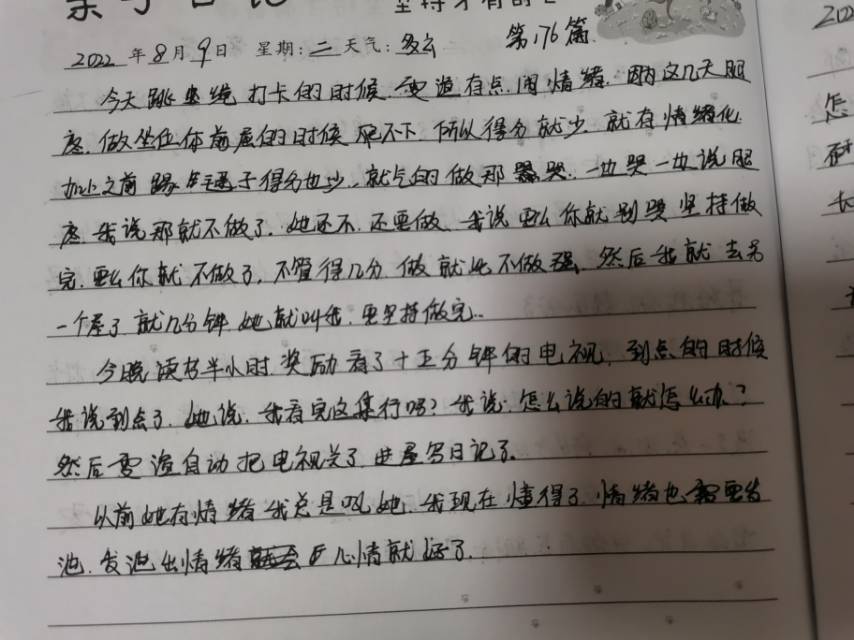 亲子日记
坚持才有的
2022年8月9日 星期:二 天气:多云 第176篇
今天跳坐绳打卡的时候雯渲有点闹情绪.因为这几天腿
疼.做坐位体前屈的时候爬不下.所以得分就少.就有情绪化
加上之前踢毛毽子得分也少..就气的做那哭..一边哭一边说腿
疼.我说那就不做了.她还不.还要做.我说要么你就别哭坚持做
完.要么你就不做了,不管得几分做就比不做强.然后我就去另
一个屋了就几分钟她就叫我.要坚持做完..
今晚读书半小时.奖励看了十五分钟的电视,到点的时候
我说到点了.她说.我看完这集行吗?我说.怎么说的就怎么办?
然后雯渲自动把电视关了.进屋写日记了.
以前她有情绪我总是吼她.我现在懂得了.情绪也需要发
泄.发泄出情绪心情就好了.
202
怎